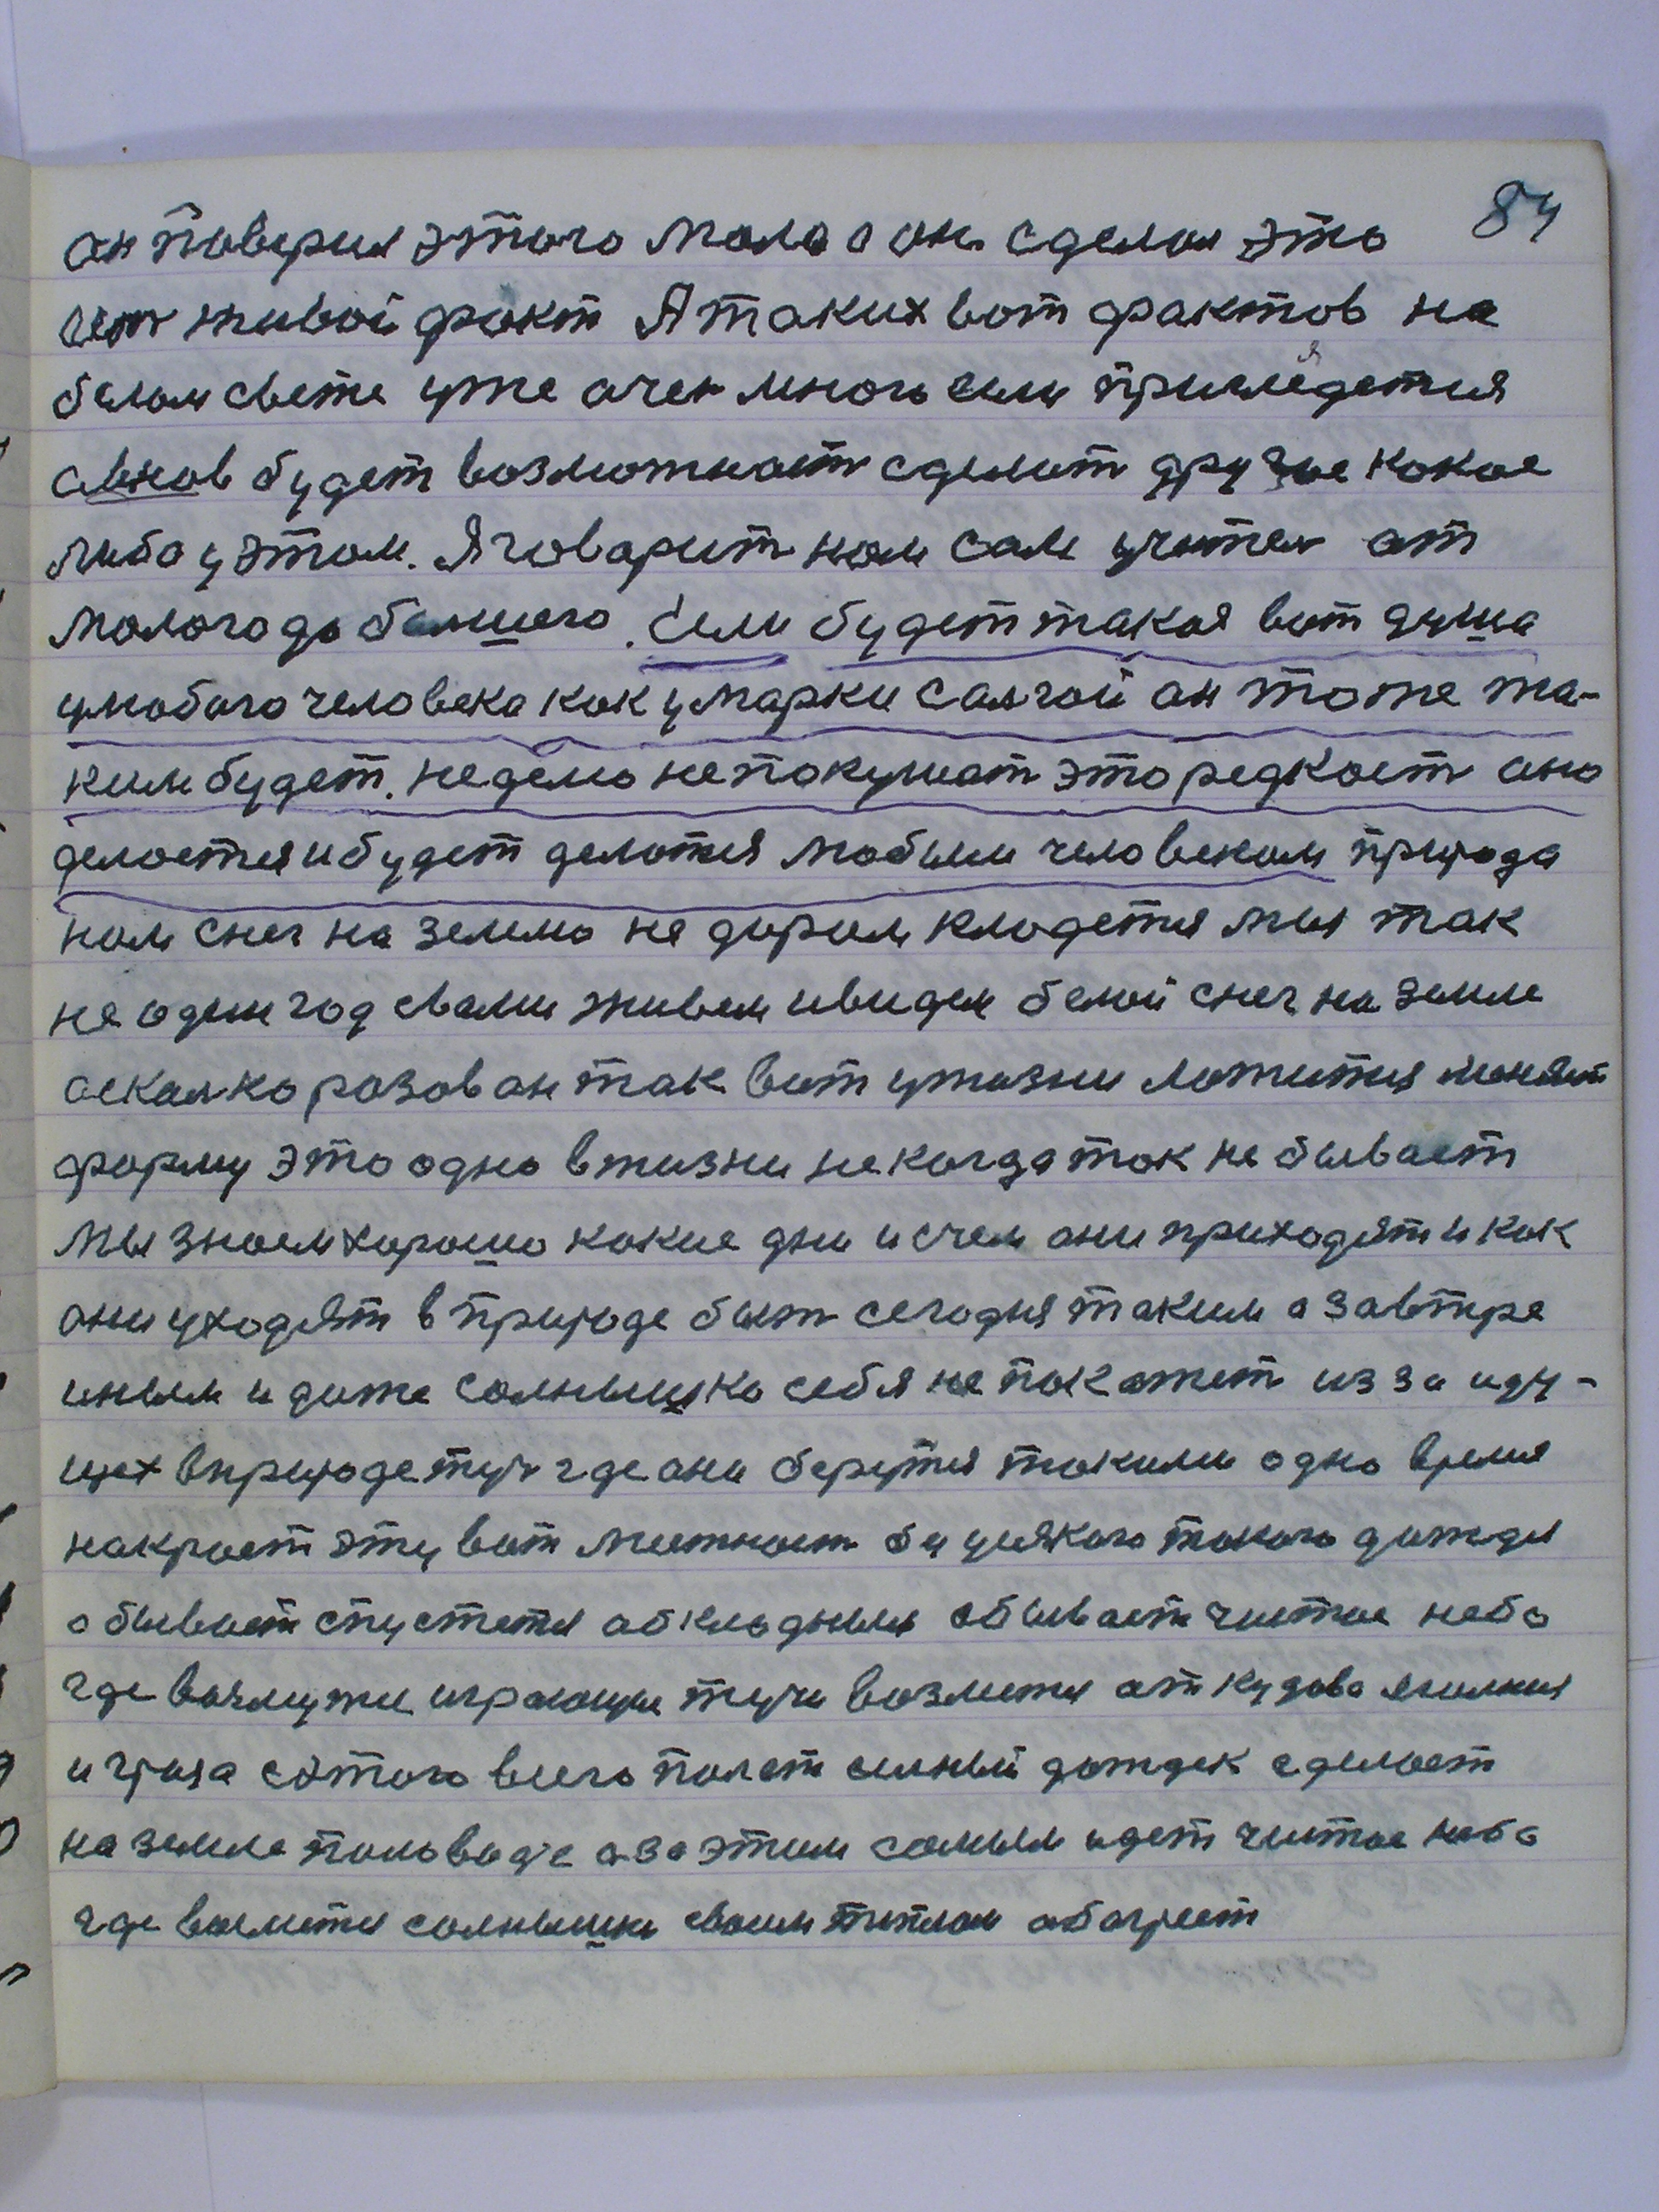 84
он поверил этого мало а он сделал это
ест живой факт А таких вот фактов на
белом свете уже очен много если приглядется
а внов будет возможност сделат другое какое
либо у этом. А говарит нам сам учител от
малого до большего. Если будет такая вот душа
у любого человека как у марки самгой он тоже та-
ким будет. неделю не покушат это редкост оно
делоется и будет делатся любым человеком природа
нам снег на землю не даром кладется мы так
не один год свами живем и видем белой снег на земле
а сколко розов он так вот у жизни ложится меняит
форму это одно в жизни не когда так не бывает
мы знаем хорошо какие дни и счем они приходят и как
они уходят в природе быт сегодня таким а завтре
иным и даже солнышко себя не покажет из за иду-
щех в природе туч где они берутся такими одно время
накроет эту вот местност без усякого такого дождя
а бывает спустется абкладным а бывает чистое небо
где возмутие играющие тучи возмутся аткудова молния
и гроза с этого всего полет силный дождек сделает
на земле половоде а за этим самым идет чистое небо
где возмется солнышко своим теплом абогреет